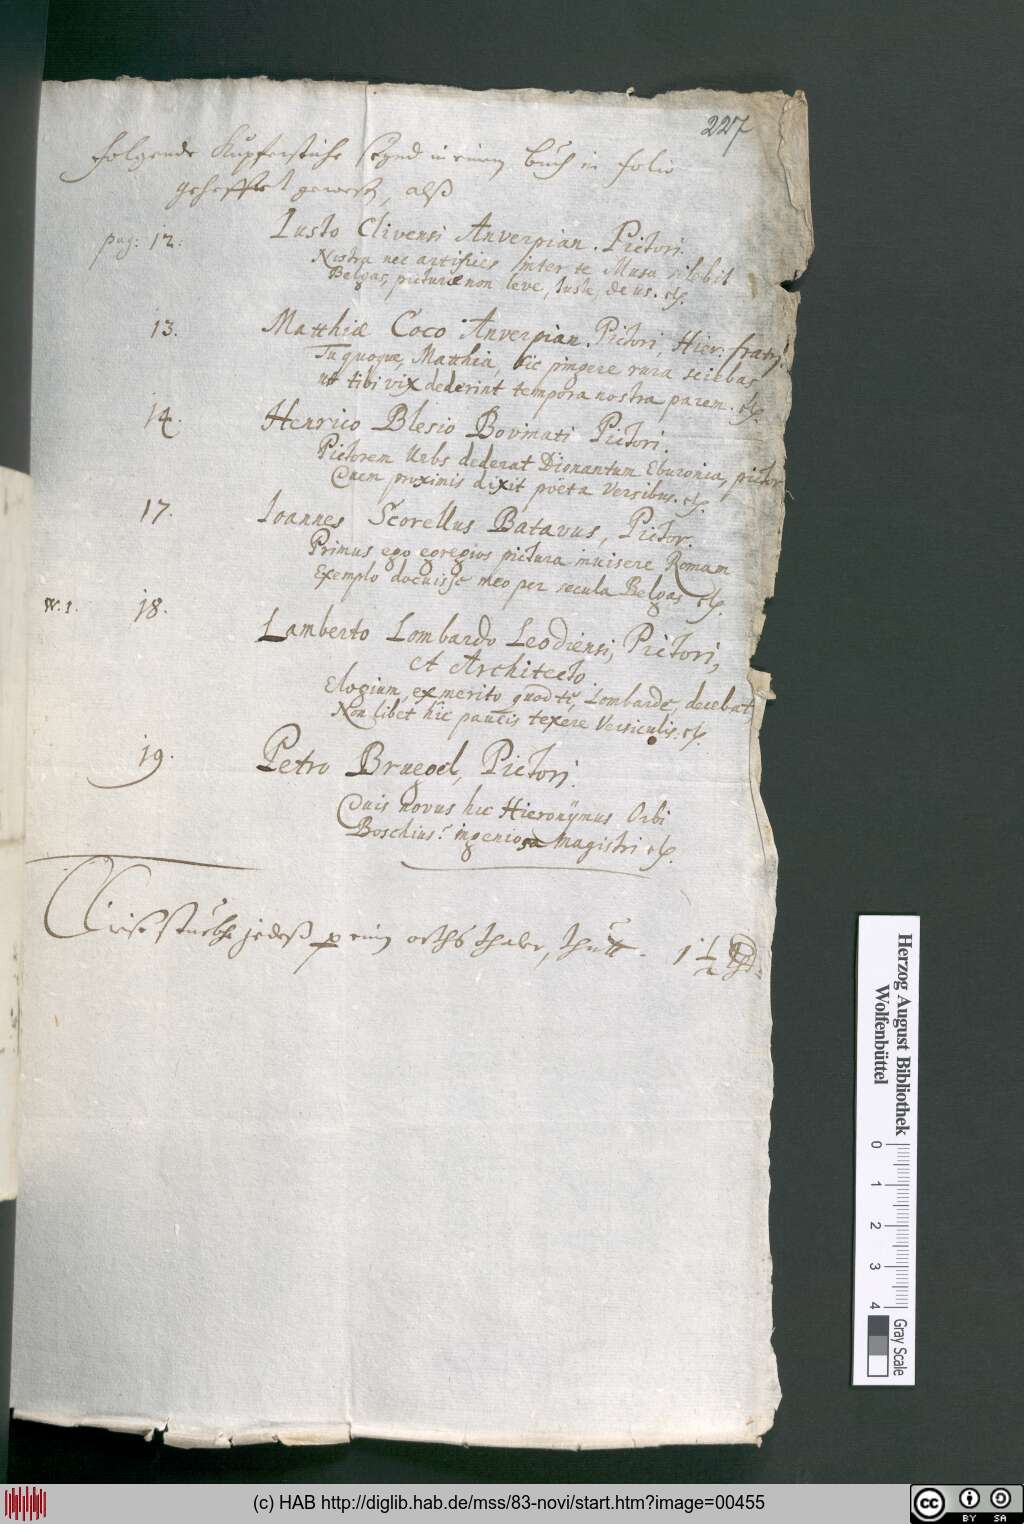 227
Folgende Kupferstiche seynd in einem buch in folio
gehefftet gewest, alß
pag: 12. Iusto Clivensi Anverpian. Pictori.
Nostra nec artifices inter te Musa silebit
Belgas, picturæ non leve, Iuste, decus. etc.
13. Matthiæ Coco Anverpian. Pictori, Hier. fratri.
Tu quoque, Matthia, sic pingere rura sciebas
ut tibi vix dederint tempora nostra parem. etc.
14. Henrico Blesio Bovinati Pictori.
Pictorem Urbs dederat Dionantum Eburonia, pictor
Quem proximis dixit poëta Versibus. etc.
17. Ioannes Scorellus Batavus, Pictor.
Primus ego egregios pictura inuisere Romam
Exemplo docuisse meo per secula Belgas etc.
N. 1. 18. Lamberto Lombardo Leodiensi, Pictori,
et Architecto
Elogium, ex merito quod te, Lombarde, decebat,
Non libet hic paucis texere Versiculis. etc.
19. Petro Bruegel, Pictori.
Quis novus hic Hieronÿmus Orbi
Boschius? ingeniosa magistri etc.
Diese stuckh jedeß p ein orths thaler, thutt. 1 1/2
Herzog August Bibliothek
Wolfenbüttel
0 1 2 3 4
Gray Scale
(c) HAB http://diglib.hab.de/mss/83-novi/start.htm?image=00455
cc BY SA